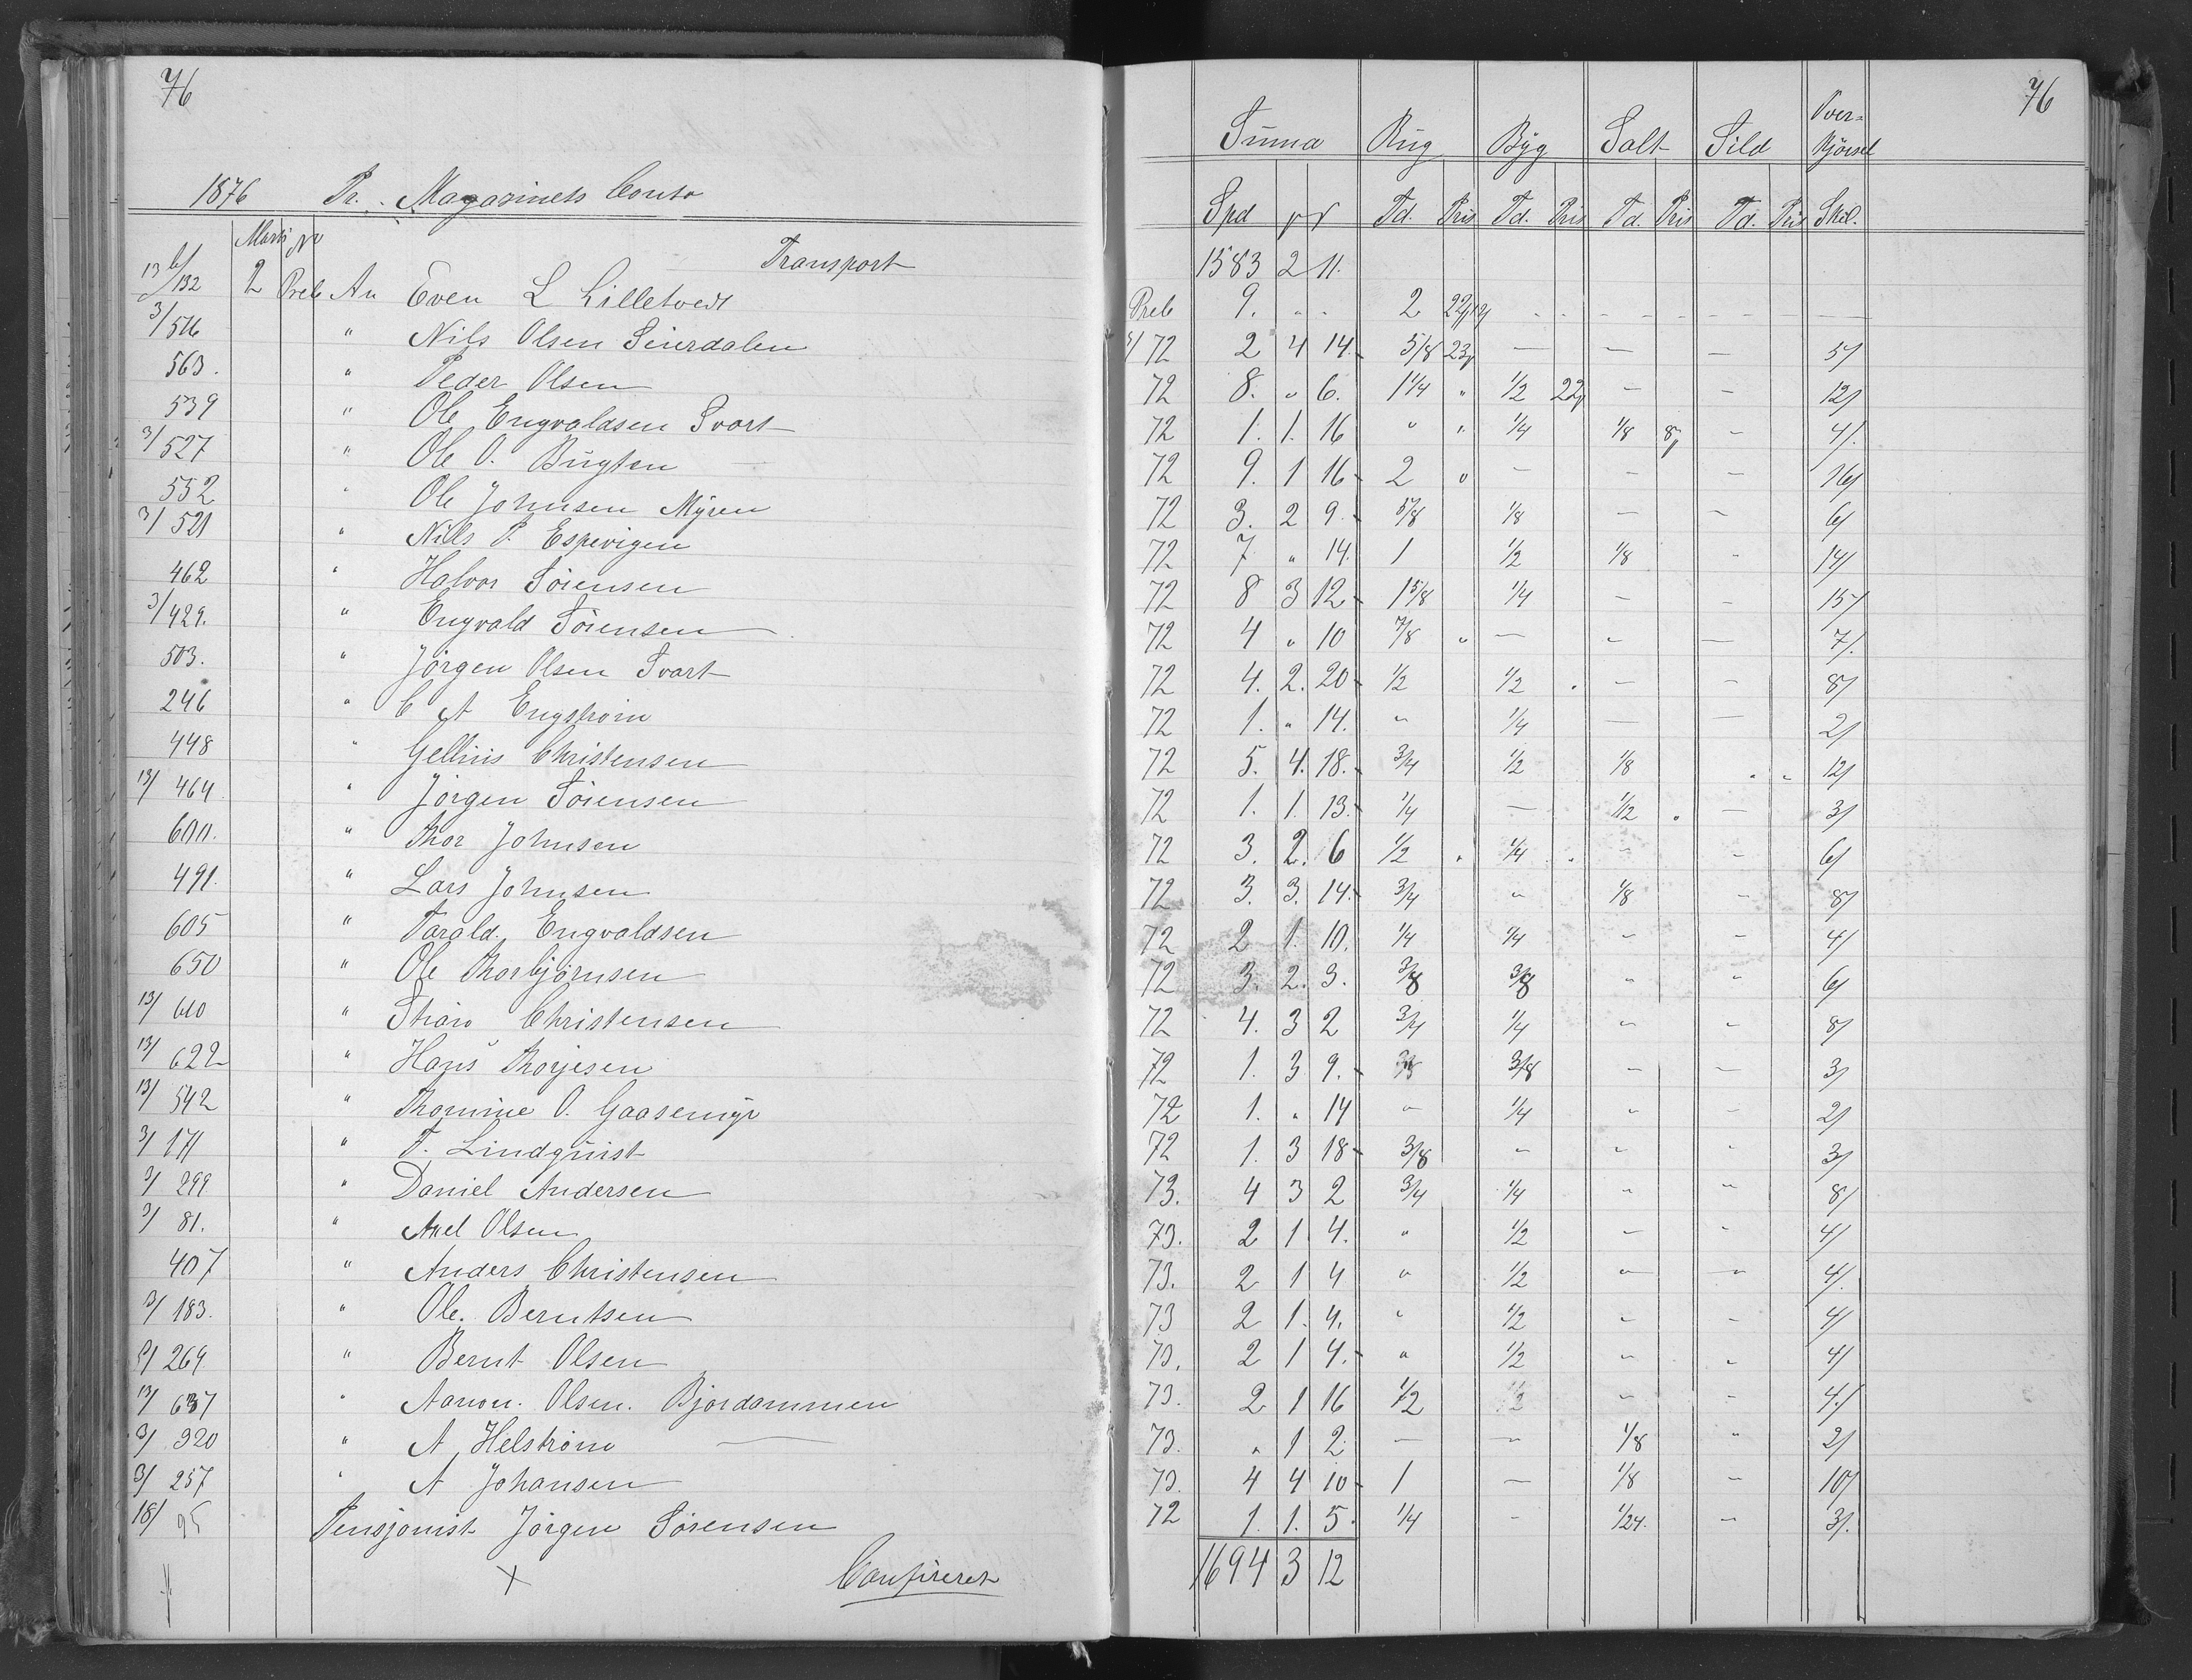 76
1876 Pr. Magasinets Conto
Mark No
Transport
13/6 132 2 Preb An Even L Lilletvedt
3/ 516 " Nils Olsen Seierdalen
563. " Peder Olsen
539 " Ole Engvaldsen Svart
3/ 527 " Ole O. Bugten
552 " Ole Johnsen Myren
3/ 521 " Nils P. Espevigen
462 " Halvor Sörensen
3/ 429. " Engvald Sörensen
503. " Jörgen Olsen Svart
246 " C A Engström
448 " Gellius Christensen
13/ 464 " Jörgen Sörensen
600. " Thor Johnsen
491. " Lars Johnsen
605 " Tarald Engvaldsen
650 " Ole Thorbjörnsen
13/ 610 " Christensen
13/ 622 " Hans Thorjesen
13/ 542 " Thomine O. Gaasemyr
3/ 171 " T. Lindquist
3/ 299 " Daniel Andersen
3/ 81. " Axel Olsen
407 " Anders Christensen
3/ 183. " Ole Berntsen
3/ 269 " Bernt Olsen
13/ 637 " Aanon Olsen Bjordammen
3/ 320 " A Helström
3/ 257 " A Johansen
18/ 95 Pensjonist Jörgen Sörensen
Confereret
76
Suma Rug Byg Salt Sild Over-kjörsel
Spd Td. Pris Td. Pris Td. Pris Td. Pris Skil.
1583 2 11.
Preb 9. " " 2
72 2 4 14 5/8 23 — — — 5/
72 8. " 6. 1 1/4 " 1/2 22 — — 12/
72 1. 1. 16 " " 1/4 1/8 8 — 4/.
72 9. 1 16 2 " — — — 16/
72 3. 2 9 5/8 1/8 — — 6/
72 7 " 14. 1 1/2 1/8 " 14/
72 8 3 12 1 5/8 1/4 — — 15/
72 4 " 10 7/8 " — — — 7/.
72 4. 2. 20 1/2 1/2 — — 8/
72 1. " 14. " 1/4 — — 2/
72 5. 4. 18. 3/4 1/2 1/8 " " 12/
72 1. 1. 13. 1/4 — 1/12 — 3/
72 3. 2. 6 1/2 " 1/4 " — — 6/
72 3. 3. 14. 3/4 " 1/8 — 8/
72 2 1. 10. 1/4 1/4 — — 4/
72 3. 2. 3. 3/8 3/8 " " 6/
72 4. 3 2 3/4 1/4 — — 8/
72 1. 3 9. 3/8 — — 3/
72 1. " 14 — 1/4 " — 2/
72 1. 3 18 3/8 — — — 3/
73. 4 3 2 3/4 1/4 " " 8/
73. 2 1 4. " 1/2 — — 4/
73. 2 1 4 " 1/2 — — 4/.
73 2 1. 4. " 1/2 — — 4/
73. 2 1 4. " 1/2 — — 4/
73. 2 1 16 1/2 — — 4/
73. " 1 2 — — 1/8 " 2/
73. 4 4 10 1 — 1/8 — 10/
72 1. 1. 5. 1/4 — 1/24. — 3/.
1694 3 12